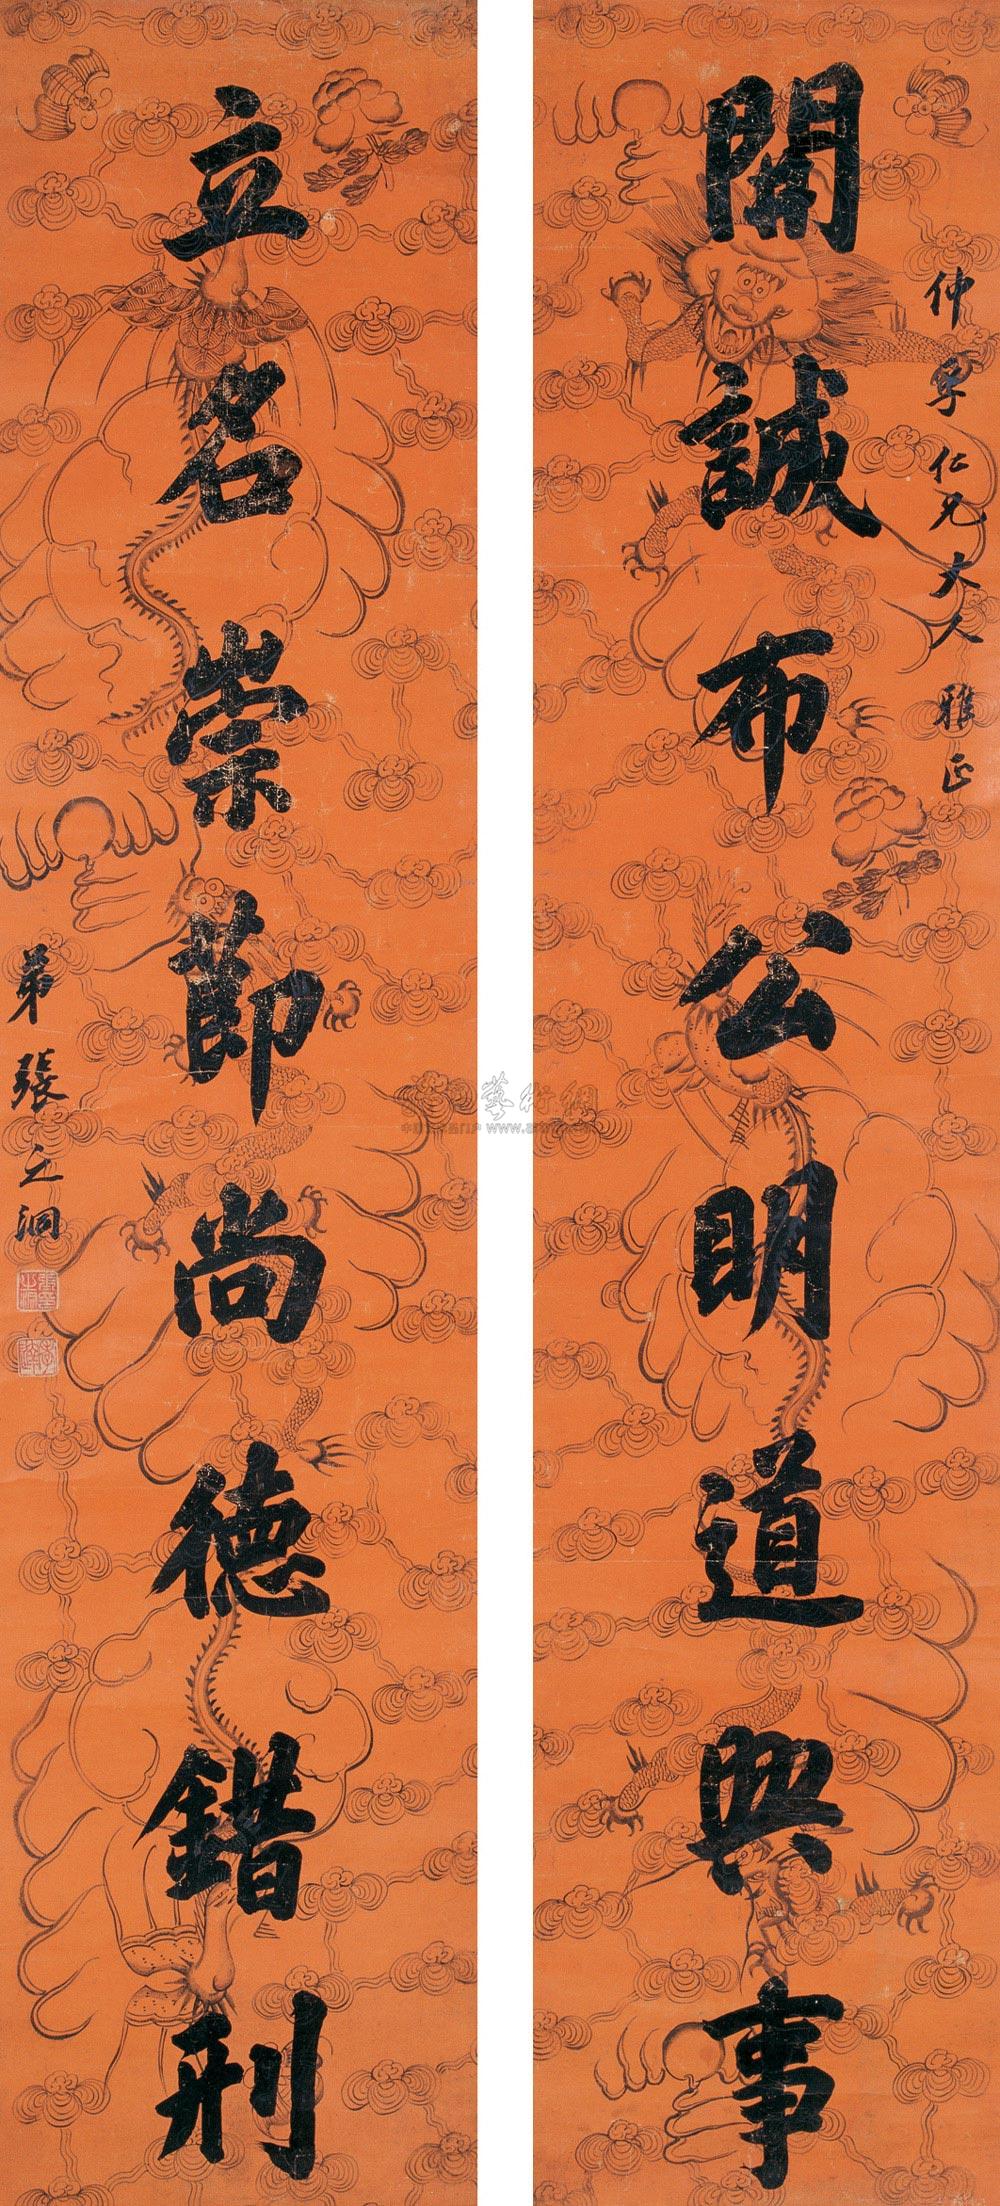 開誠布公明道興事
仲寧仁兄大人雅正
立名崇節尚德錯刑
弟張之洞
藝術網
www.